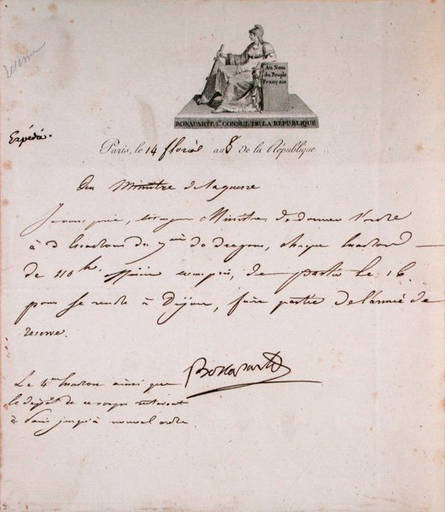 Au Nom
du Peuple
Français
BONAPARTE 1er CONSUL DE LA RÉPUBLIQUE
Expédié.
Paris, le 14 floréal an 8 de la République
Au Ministre de la guerre
Je vous prie, citoyen Ministre, de donner l'ordre
à 3 escadrons du 7 de dragons, chaque escadron
de 110 h. officiers compris, de partir le 16
pour se rendre à Dijon, faire partie de l'armée de
reserve.
Bonaparte
Le 4e escadron ainsi que
le dépôt de ce corps resteront
à Paris jusqu'à nouvel ordre